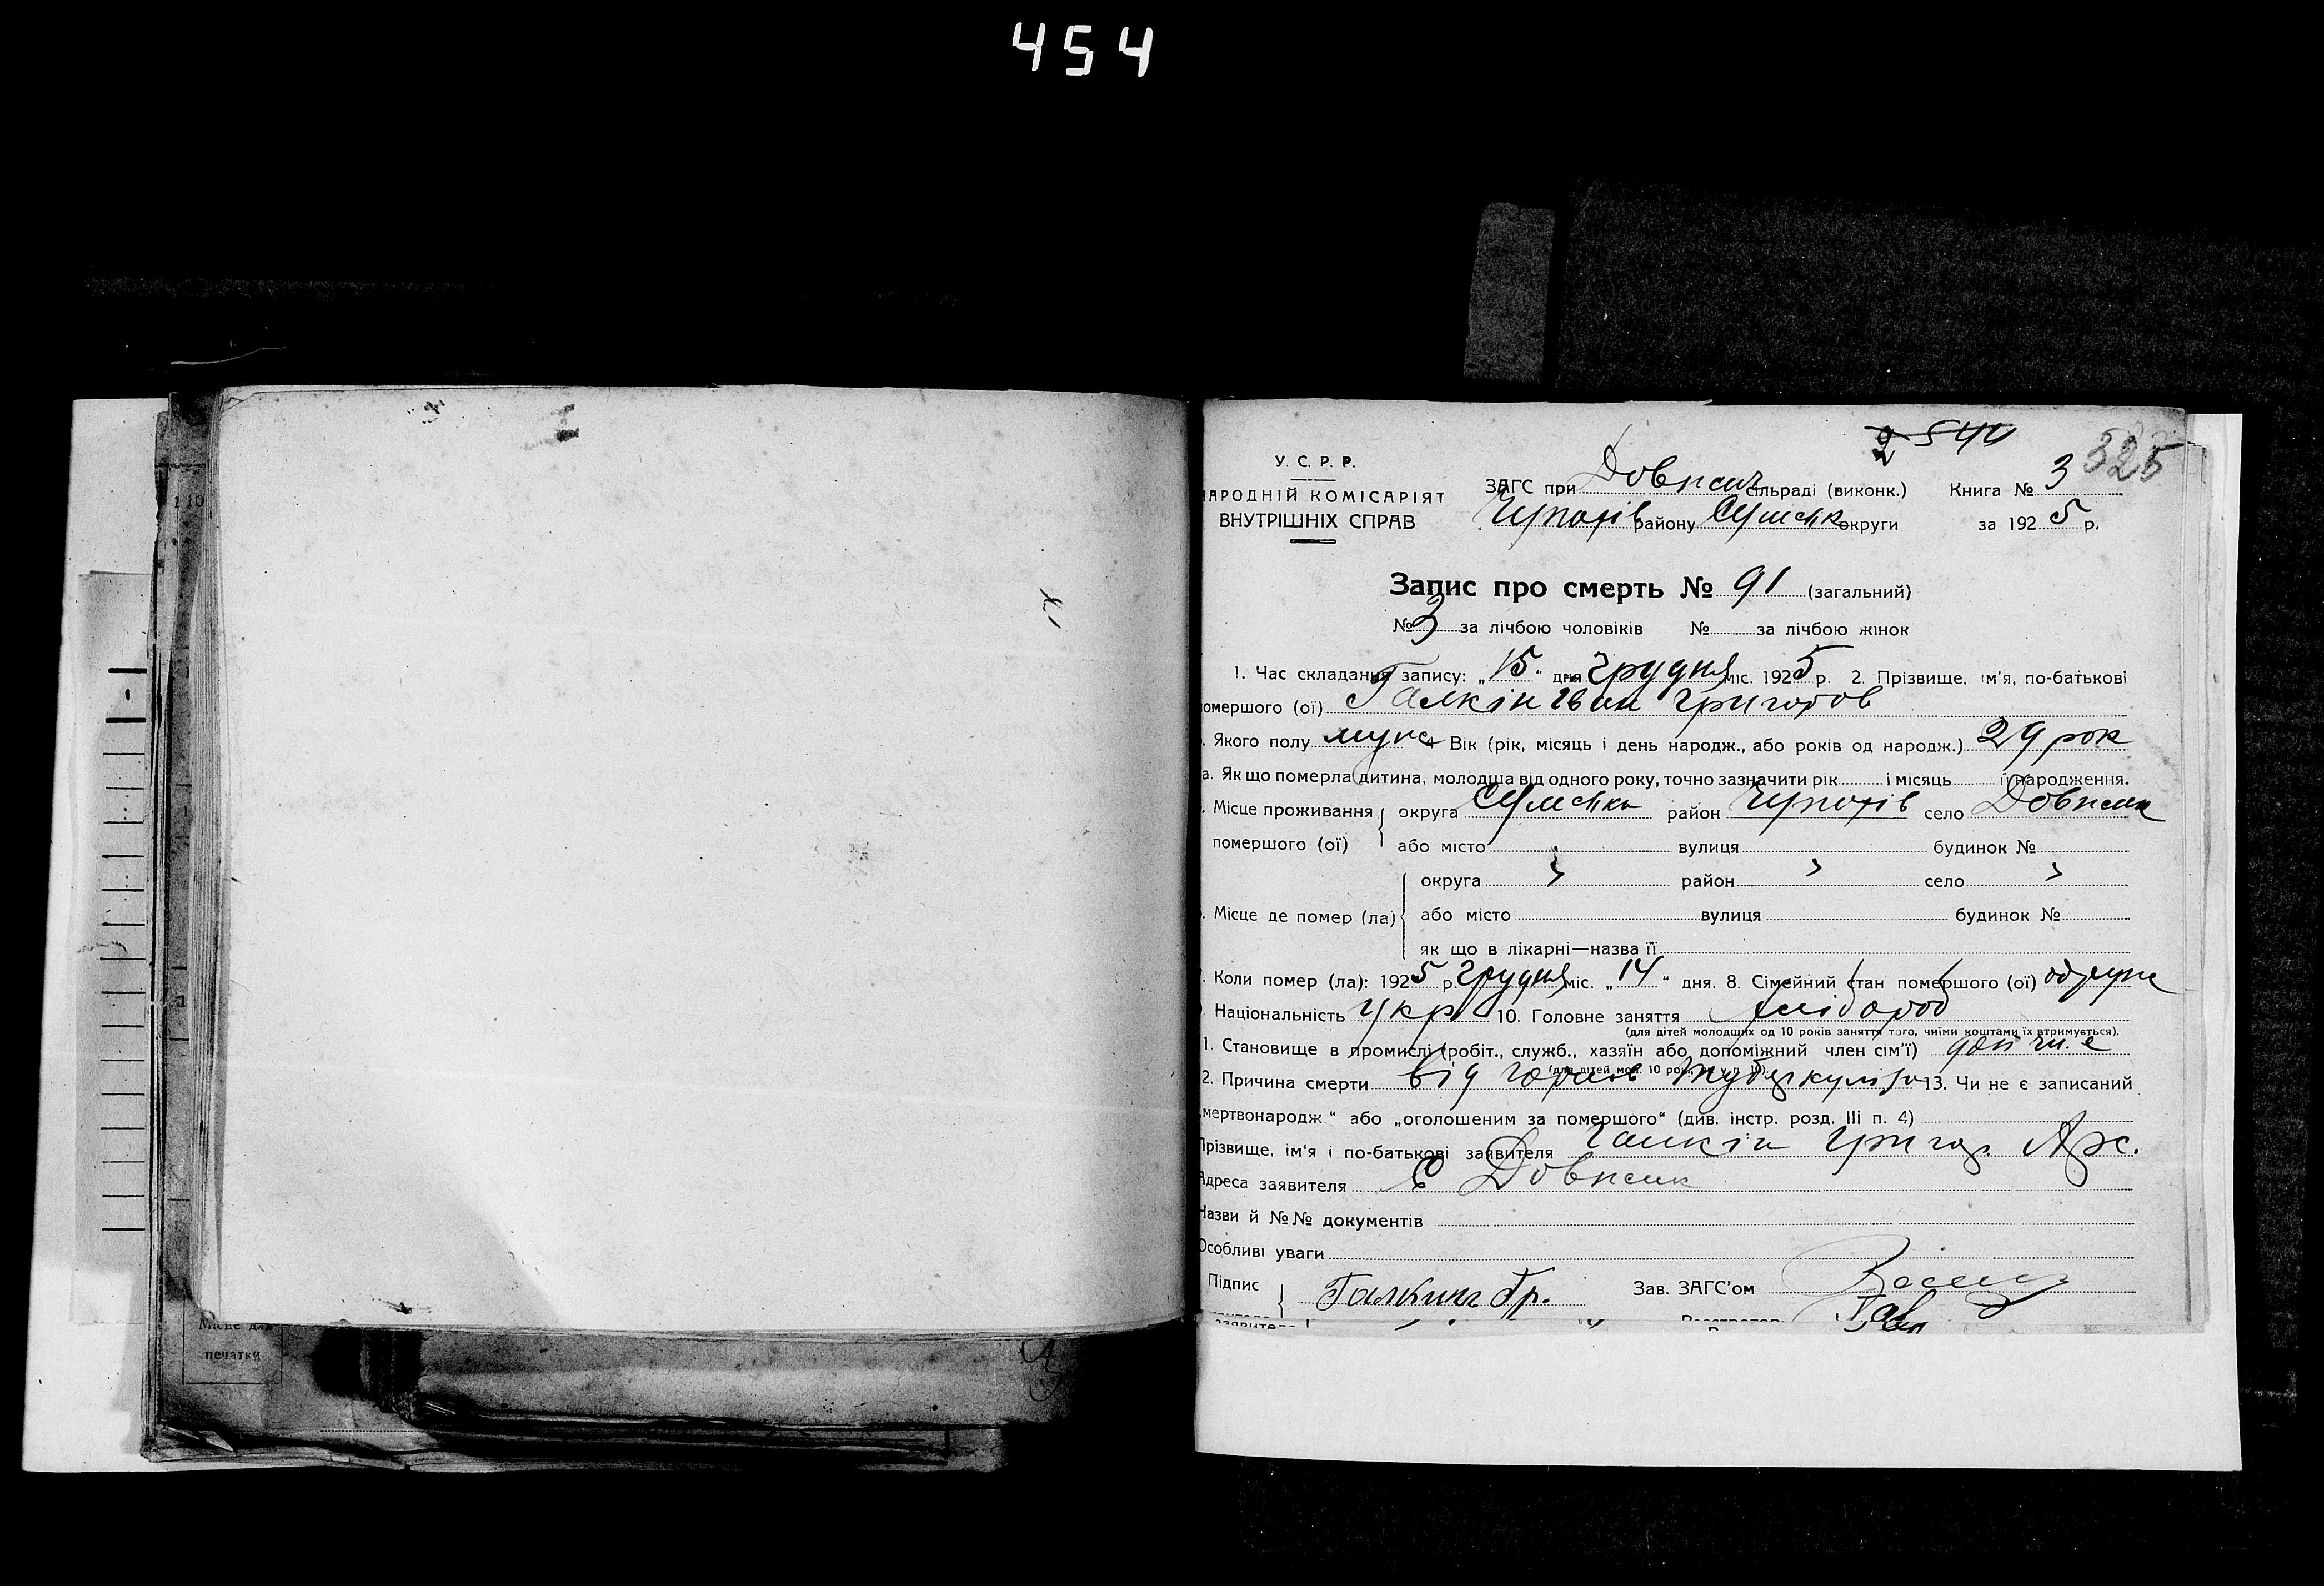 454
2 544
325
У. С. Р. Р.
НАРОДНІЙ КОМІСАРІЯТ
ВНУТРІШНІХ СПРАВ
ЗАГС при Довжич сільраді (виконк.) Книга № 3
району Сумськ округи за 1925 р.
Запис про смерть № 91 (загальний)
№ 3 за лічбою чоловіків № за лічбою жінок
1. Час складання запису: „15“ дня грудня міс. 1925 р. 2. Прізвище, ім'я, по-батькові
омершого (ої) Галкін Іван Григоров
Якого полу муж 4 Вік (рік, місяць і день народж., або років од народж.) 29 рок
а. Як що померла дитина, молодша від одного року, точно зазначити рік і місяць її народження.
Місце проживання округа Сумська район село
помершого (ої) або місто вулиця будинок №
округа район село
Місце де помер (ла) або місто вулиця будинок №
як що в лікарні—назва її
Коли помер (ла): 1925 р. грудня міс. „14“ дня. 8. Сімейний стан помершого (ої) одруже
Національність Укр 10. Головне заняття хлібороб
(для дітей молодших од 10 років заняття того, чиїми коштами їх втримується).
1. Становище в промислі (робіт., служб., хазяїн або допоміжний член сім'ї) доп чл. с
2. Причина смерти від туберкульозу 13. Чи не є записаний
„мертвонародж“ або „оголошеним за помершого“ (див. інстр. розд. III п. 4)
Прізвище, ім'я і по-батькові заявителя Галкін Григор.
Адреса заявителя С
Назви й №№ документів
Особливі уваги
Підпис Галкинъ Гр. Зав. ЗАГС'ом
заявителя
Місце для
печатки